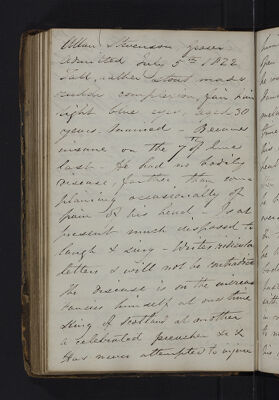 Allan Stevenson Joiner
admitted July 5th 1822
Tall, rather stout made
ruddy complexion, fair hair
light blue eyes, aged 30
years. Married - Became
insane on the 7th of June
last - He had no bodily
Disease, further than com-
plaining occasionally of
pain of his head - Is at
present much disposed to
laugh & sing - Writes ridiculous
letters & will not be contradicted
The Disease is on the increase
Fancies himself at one time
King of Scotland at another
a celebrated preacher &c &
Has never attempted to injure